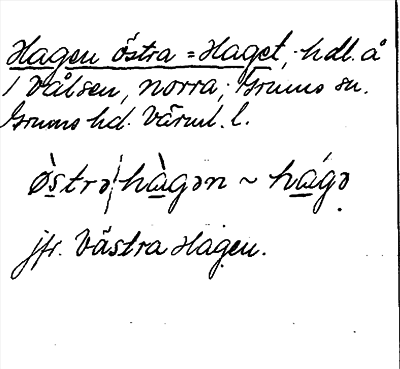 Hagen östra = Haget, hdl. å
1 Vålsen, norra, Grums sn.
Grums hd. Värml. l.
ø̀strə hàgən ~ hágə
jfr. Västra Hagen.